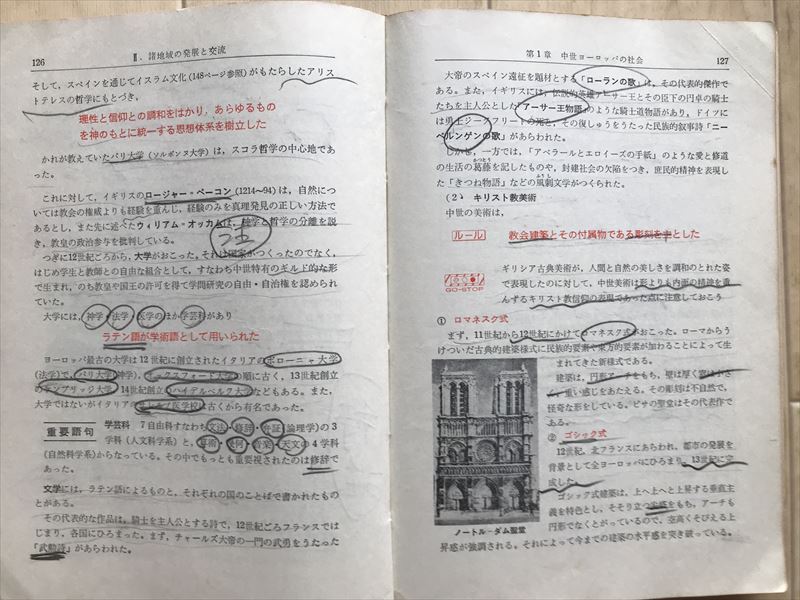 126
Ⅱ. 諸地域の発展と交流
そして，スペインを通じてイスラム文化(148ページ参照)がもたらしたアリス
トテレスの哲学にもとづき，
理性と信仰との調和をはかり，あらゆるもの
を神のもとに統一する思想体系を樹立した
かれが教えていたパリ大学(ソルボンヌ大学)は，スコラ哲学の中心地であ
った。
これに対して，イギリスのロージャー・ベーコン(1214〜94)は，自然につ
いては教会の権威よりも経験を重んじ，経験のみを真理発見の正しい方法で
あるとし，また先に述べたウィリアム・オッカムは，神学と哲学の分離を説
き，教皇の政治参与を批判している。
つぎに12世紀ころから，大学がおこった。それは国家がつくったのでなく，
はじめ学生と教師との自由な組合として，すなわち中世特有のギルド的な形
で生まれ，のち教皇や国王の許可を得て学問研究の自由・自治権を認められ
ていた。
大学には，神学・法学・医学のほか学芸科があり
ラテン語が学術語として用いられた
ヨーロッパ最古の大学は12世紀に創立されたイタリアのボローニャ大学
(法学)で，パリ大学(神学)，オックスフォード大学の順に古く，13世紀創立
のケンブリッジ大学，14世紀創立のハイデルベルク大学などもある。また，
大学ではないがイタリアのサレルノ医学校は古くから有名であった。
重要語句 学芸科 7自由科すなわち文法・修辞・弁証(論理学)の3
学科(人文科学系)と，算術・幾何・音楽・天文の4学科
(自然科学系)からなっている。その中でもっとも重要視されたのは修辞で
あった。
文学には，ラテン語によるものと，それぞれの国のことばで書かれたもの
とがある。
その代表的な作品は，騎士を主人公とする詩で，12世紀ころフランスでは
じまり，各国にひろまった。まず，チャールズ大帝の一門の武勇をうたった
「武勲詩」があらわれた。
第1章 中世ヨーロッパの社会
127
大帝のスペイン遠征を題材とする「ローランの歌」は，その代表的傑作で
ある。また，イギリスには，伝説的英雄アーサー王とその臣下の円卓の騎士
たちを主人公とした「アーサー王物語」のような騎士道物語があり，ドイツに
は勇士ジークフリートの死と，その復しゅうをうたった民族的叙事詩「ニー
ベルンゲンの歌」があらわれた。
しかも，一方では，「アベラールとエロイーズの手紙」のような愛と修道
の生活の葛藤を記したものや，封建社会の欠陥をつき，庶民的精神を表現し
かっとう
た「きつね物語」などの風刺文学がつくられた。
(2) キリスト教美術
中世の美術は，
ルール 教会建築とその付属物である彫刻を主とした
GO-STOP ギリシア古典美術が，人間と自然の美しさを調和のとれた姿
で表現したのに対して，中世美術は形よりも内面の精神を重
んずるキリスト教信仰の表現であった点に注意しておこう
① ロマネスク式
まず，11世紀から12世紀にかけてロマネスク式がおこった。ローマからう
けついだ古典的建築様式に民族的要素や東方的要素が加わることによって生
まれてきた新様式である。
建築は，円形アーチをもち，壁は厚く窓は小さ
く，重い感じをあたえる。その彫刻は不自然で，
怪奇な形をしている。ピサの聖堂はその代表作で
ある。
② ゴシック式
12世紀，北フランスにあらわれ，都市の発展を
背景として全ヨーロッパにひろまり，13世紀に完
成した。
ゴシック式建築は，上へ上へと上昇する垂直主
義を特色とし，そそり立つ尖塔をもち，アーチも
円形でなくとがっているので，空高くそびえる上
昇感が強調される。それによって今までの建築の水平感を突き破っている。
ノートル・ダム聖堂